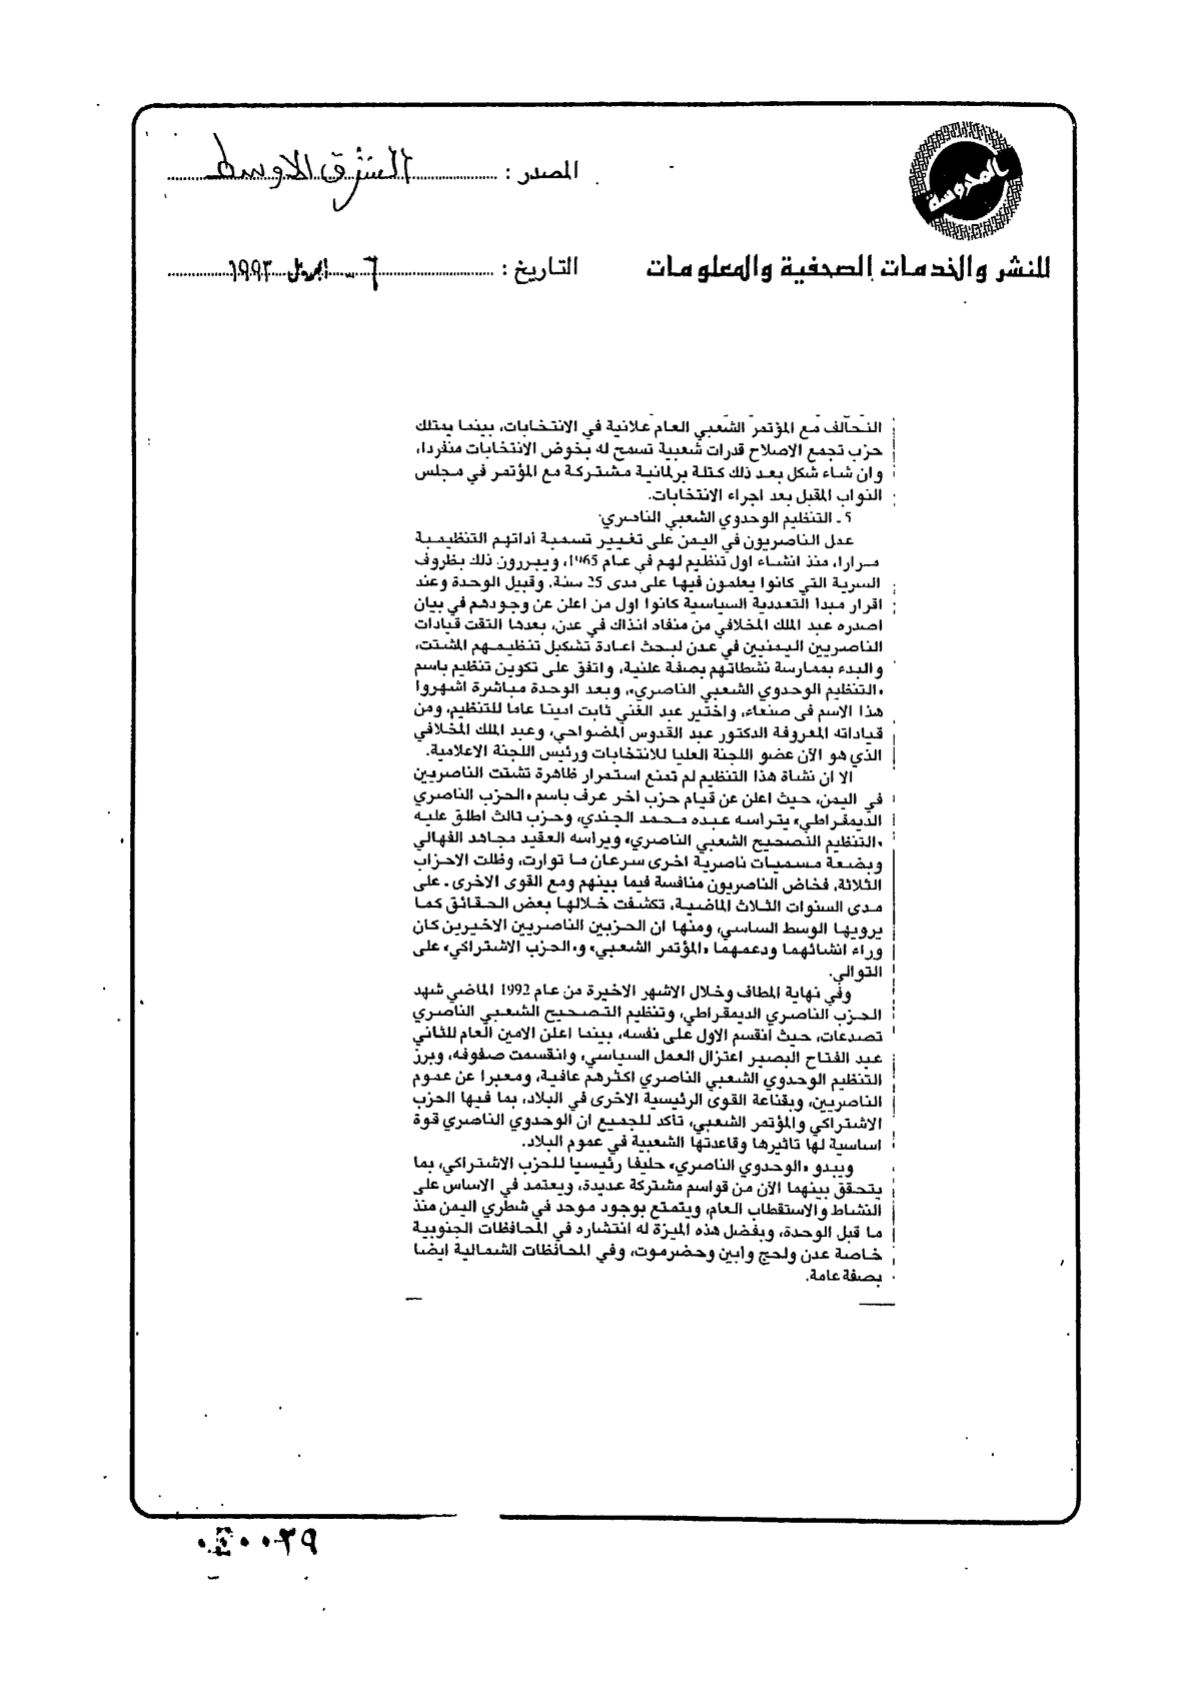 المحروسة
المصدر : الشرق الاوسط
للنشر والخدمات الصحفية والمعلومات
التاريخ : ٦ ابريل ١٩٩٣
التحالف مع المؤتمر الشعبي العام علانية في الانتخابات، بينما يمتلك
حزب تجمع الاصلاح قدرات شعبية تسمح له بخوض الانتخابات منفردا،
وان شاء شكل بعد ذلك كتلة برلمانية مشتركة مع المؤتمر في مجلس
النواب المقبل بعد اجراء الانتخابات.
5 ـ التنظيم الوحدوي الشعبي الناصري:
عمل الناصريون في اليمن على تغيير تسمية أداتهم التنظيمية
مرارا، منذ انشاء اول تنظيم لهم في عام 1965، ويبررون ذلك بظروف
السرية التي كانوا يعملون فيها على مدى 25 سنة. وقبيل الوحدة وعند
اقرار مبدا التعددية السياسية كانوا اول من اعلن عن وجودهم في بيان
اصدره عبد الملك المخلافي من منفاه انذاك في عدن، بعدها التقت قيادات
الناصريين اليمنيين في عدن لبحث اعادة تشكيل تنظيمهم المشتت،
والبدء بممارسة نشطاتهم بصفة علنية، واتفق على تكوين تنظيم باسم
«التنظيم الوحدوي الشعبي الناصري»، وبعد الوحدة مباشرة اشهروا
هذا الاسم في صنعاء، واختير عبد الغني ثابت امينا عاما للتنظيم، ومن
قياداته المعروفة الدكتور عبد القدوس المضواحي، وعبد الملك المخلافي
الذي هو الآن عضو اللجنة العليا للانتخابات ورئيس اللجنة الاعلامية.
الا ان نشاة هذا التنظيم لم تمنع استمرار ظاهرة تشتت الناصريين
في اليمن، حيث اعلن عن قيام حزب اخر عرف باسم «الحزب الناصري
الديمقراطي» يتراسه عبده محمد الجندي، وحزب ثالث اطلق عليه
«التنظيم التصحيح الشعبي الناصري» ويراسه العقيد مجاهد القهالي
وبضعة مسميات ناصرية اخرى سرعان ما توارت، وظلت الاحزاب
الثلاثة، فخاض الناصريون منافسة فيما بينهم ومع القوى الاخرى ـ على
مدى السنوات الثلاث الماضية، تكشفت خلالها بعض الحقائق كما
يرويها الوسط الساسي، ومنها ان الحزبين الناصريين الاخيرين كان
وراء انشائهما ودعمهما «المؤتمر الشعبي» و«الحزب الاشتراكي» على
التوالي.
وفي نهاية المطاف وخلال الاشهر الاخيرة من عام 1992 الماضي شهد
الحزب الناصري الديمقراطي، وتنظيم التصحيح الشعبي الناصري
تصدعات، حيث انقسم الاول على نفسه، بينما اعلن الامين العام للثاني
عبد الفتاح البصير اعتزال العمل السياسي، وانقسمت صفوفه، وبرز
التنظيم الوحدوي الشعبي الناصري اكثرهم عافية، ومعبرا عن عموم
الناصريين، وبقناعة القوى الرئيسية الاخرى في البلاد، بما فيها الحزب
الاشتراكي والمؤتمر الشعبي، تأكد للجميع ان الوحدوي الناصري قوة
اساسية لها تاثيرها وقاعدتها الشعبية في عموم البلاد.
ويبدو «الوحدوي الناصري» حليفا رئيسيا للحزب الاشتراكي، بما
يتحقق بينهما الآن من قواسم مشتركة عديدة، ويعتمد في الاساس على
النشاط والاستقطاب العام، ويتمتع بوجود موحد في شطري اليمن منذ
ما قبل الوحدة، وبفضل هذه الميزة له انتشاره في المحافظات الجنوبية
خاصة عدن ولحج وابين وحضرموت، وفي المحافظات الشمالية ايضا
بصفة عامة.